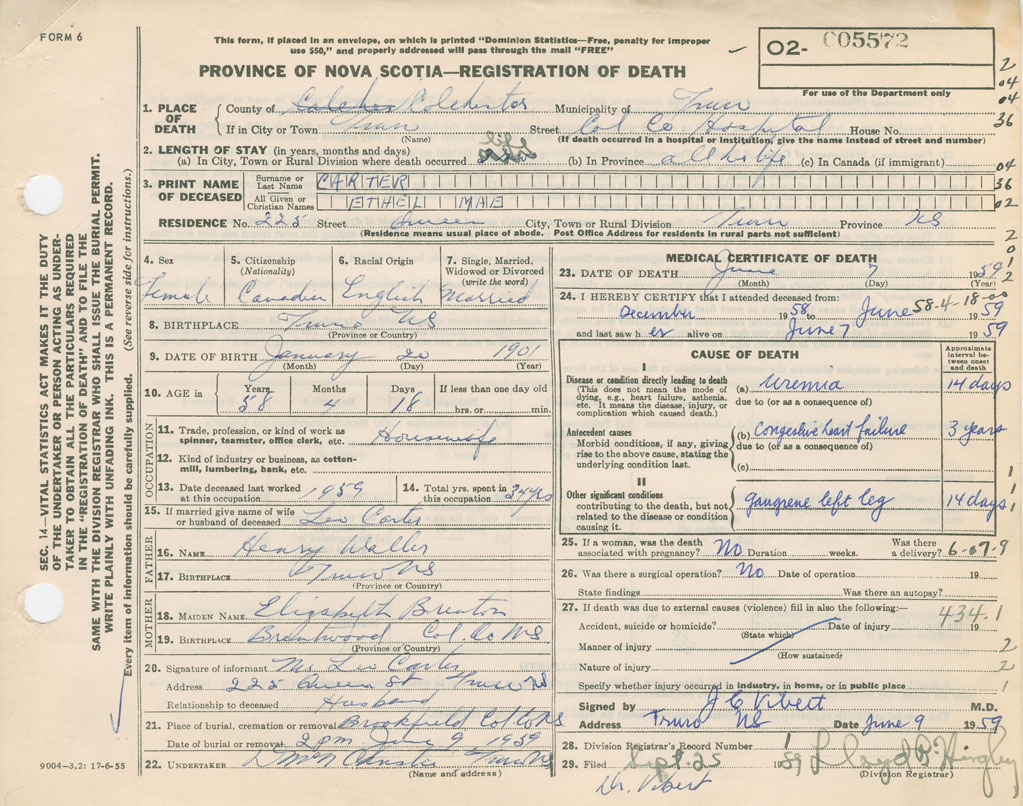 FORM 6
This form, if placed in an envelope, on which is printed "Dominion Statistics—Free, penalty for improper
use $50," and properly addressed will pass through the mail "FREE"
O2- 005572
For use of the Department only
PROVINCE OF NOVA SCOTIA—REGISTRATION OF DEATH
2
04
04
36
1. PLACE OF DEATH
County of Colchester Municipality of Truro
If in City or Town Truro Street Col Co Hospital House No.
(Name) (If death occurred in a hospital or institution, give the name instead of street and number)
2. LENGTH OF STAY (in years, months and days)
(a) In City, Town or Rural Division where death occurred life (b) In Province all his life (c) In Canada (if immigrant)
04
3. PRINT NAME OF DECEASED
Surname or Last Name CARTER
36
All Given or Christian Names ETHEL MAE
02
RESIDENCE No. 225 Street Queen City, Town or Rural Division Truro Province NS
(Residence means usual place of abode. Post Office Address for residents in rural parts not sufficient)
2
0
4. Sex Female
5. Citizenship (Nationality) Canadian
6. Racial Origin English
7. Single, Married, Widowed or Divorced (write the word) Married
8. BIRTHPLACE Truro NS
(Province or Country)
9. DATE OF BIRTH January 20 1901
(Month) (Day) (Year)
10. AGE in Years 58 Months 4 Days 18 If less than one day old
hrs. or min.
OCCUPATION
11. Trade, profession, or kind of work as
spinner, teamster, office clerk, etc. Housewife
12. Kind of industry or business, as cotton-
mill, lumbering, bank, etc.
13. Date deceased last worked at this occupation 1959
14. Total yrs. spent in this occupation 34 yrs
15. If married give name of wife
or husband of deceased Leo Carter
FATHER
16. NAME Henry Waller
17. BIRTHPLACE Truro NS
(Province or Country)
MOTHER
18. MAIDEN NAME Elizabeth Brenton
19. BIRTHPLACE Brentwood Col. Co NS
(Province or Country)
20. Signature of informant Mr Leo Carter
Address 225 Queen St Truro NS
Relationship to deceased Husband
21. Place of burial, cremation or removal Brookfield Col Co NS
Date of burial or removal 2 pm June 9 1959
22. UNDERTAKER Truro NS
(Name and address)
9004—3.2: 17-6-55
MEDICAL CERTIFICATE OF DEATH
23. DATE OF DEATH June 7 1959
(Month) (Day) (Year)
1
2
24. I HEREBY CERTIFY that I attended deceased from:
58-4-18-00
December 1958 to June 1959
and last saw her alive on June 7 1959
CAUSE OF DEATH
Approximate interval between onset and death
I
Disease or condition directly leading to death
(This does not mean the mode of
dying, e.g., heart failure, asthenia,
etc. It means the disease, injury, or
complication which caused death.)
(a) Uremia 14 days
due to (or as a consequence of)
Antecedent causes
Morbid conditions, if any, giving
rise to the above cause, stating the
underlying condition last.
(b) Congestive heart failure 3 years
due to (or as a consequence of)
(c)
II
Other significant conditions
contributing to the death, but not
related to the disease or condition
causing it.
gangrene left leg 14 days
25. If a woman, was the death
associated with pregnancy? No Duration weeks. Was there
a delivery? 6-07-9
26. Was there a surgical operation? No Date of operation 19
State findings Was there an autopsy?
27. If death was due to external causes (violence) fill in also the following:—
434.1
Accident, suicide or homicide? Date of injury 19
(State which)
Manner of injury 2
(How sustained)
Nature of injury 2
Specify whether injury occurred in industry, in home, or in public place 1
Signed by J C Vibert M.D.
Address Truro NS Date June 9 1959
28. Division Registrar's Record Number
29. Filed Sept. 25 1959 Lloyd
(Division Registrar)
Dr. Vibert
SEC. 14—VITAL STATISTICS ACT MAKES IT THE DUTY
OF THE UNDERTAKER OR PERSON ACTING AS UNDER-
TAKER TO OBTAIN ALL THE PARTICULARS REQUIRED
IN THE "REGISTRATION OF DEATH" AND TO FILE THE
SAME WITH THE DIVISION REGISTRAR WHO SHALL ISSUE THE BURIAL PERMIT.
WRITE PLAINLY WITH UNFADING INK. THIS IS A PERMANENT RECORD.
Every item of information should be carefully supplied. (See reverse side for instructions.)